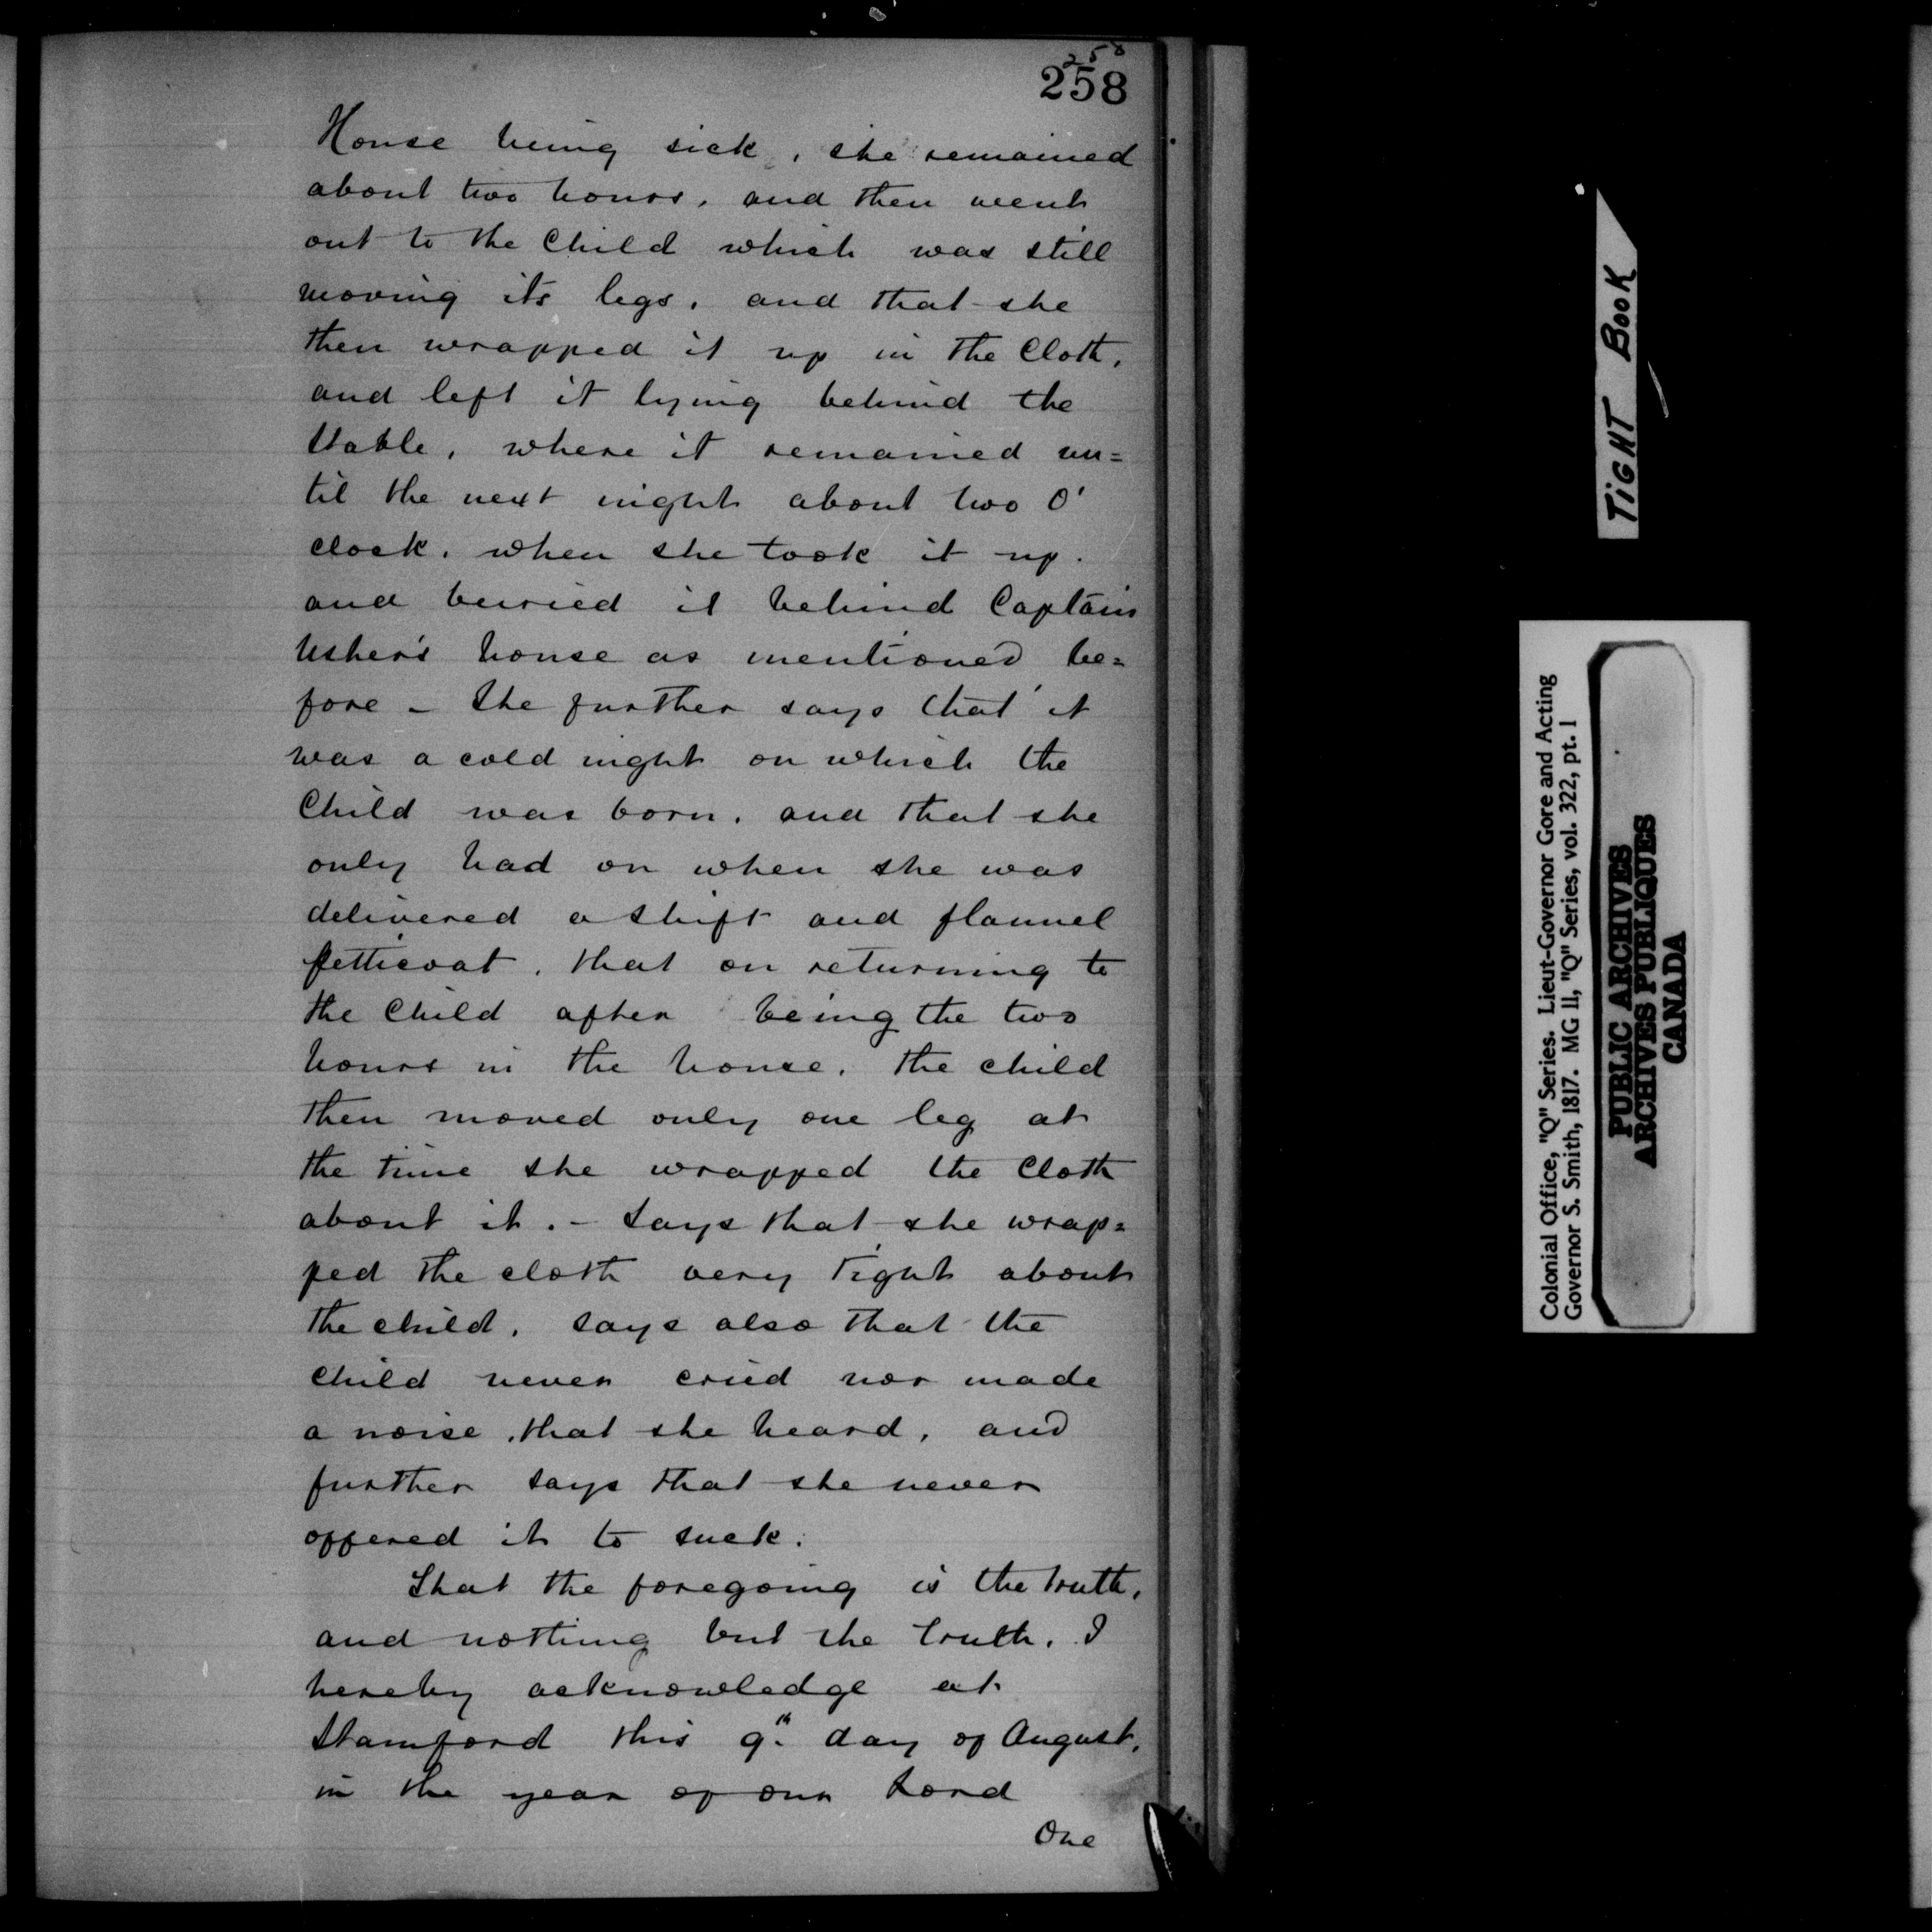 258
258
House being sick, she remained
about two hours, and then went
out to the Child which was still
moving its legs, and that she
then wrapped it up in the Cloth,
and left it lying behind the
Stable, where it remained un=
til the next night about two O'
clock, when she took it up.
and buried it behind Captain
Usher's house as mentioned be=
fore - She further says that it
was a cold night on which the
Child was born, and that she
only had on when she was
delivered a shift and flannel
petticoat, that on returning to
the Child after being the two
hours in the house, the child
then moved only one leg at
the time she wrapped the Cloth
about it. - Says that she wrap=
ped the cloth very tight about
the child, says also that the
child never cried nor made
a noise, that she heard, and
further says that she never
offered it to suck.
That the foregoing is the truth,
and nothing but the truth, I
hereby acknowledge at
Stamford this 9th day of August,
in the year of our Lord
One
TIGHT BOOK
Colonial Office, "Q" Series. Lieut-Governor Gore and Acting
Governor S. Smith, 1817. MG 11, "Q" Series, vol. 322, pt. 1
PUBLIC ARCHIVES
ARCHIVES PUBLIQUES
CANADA